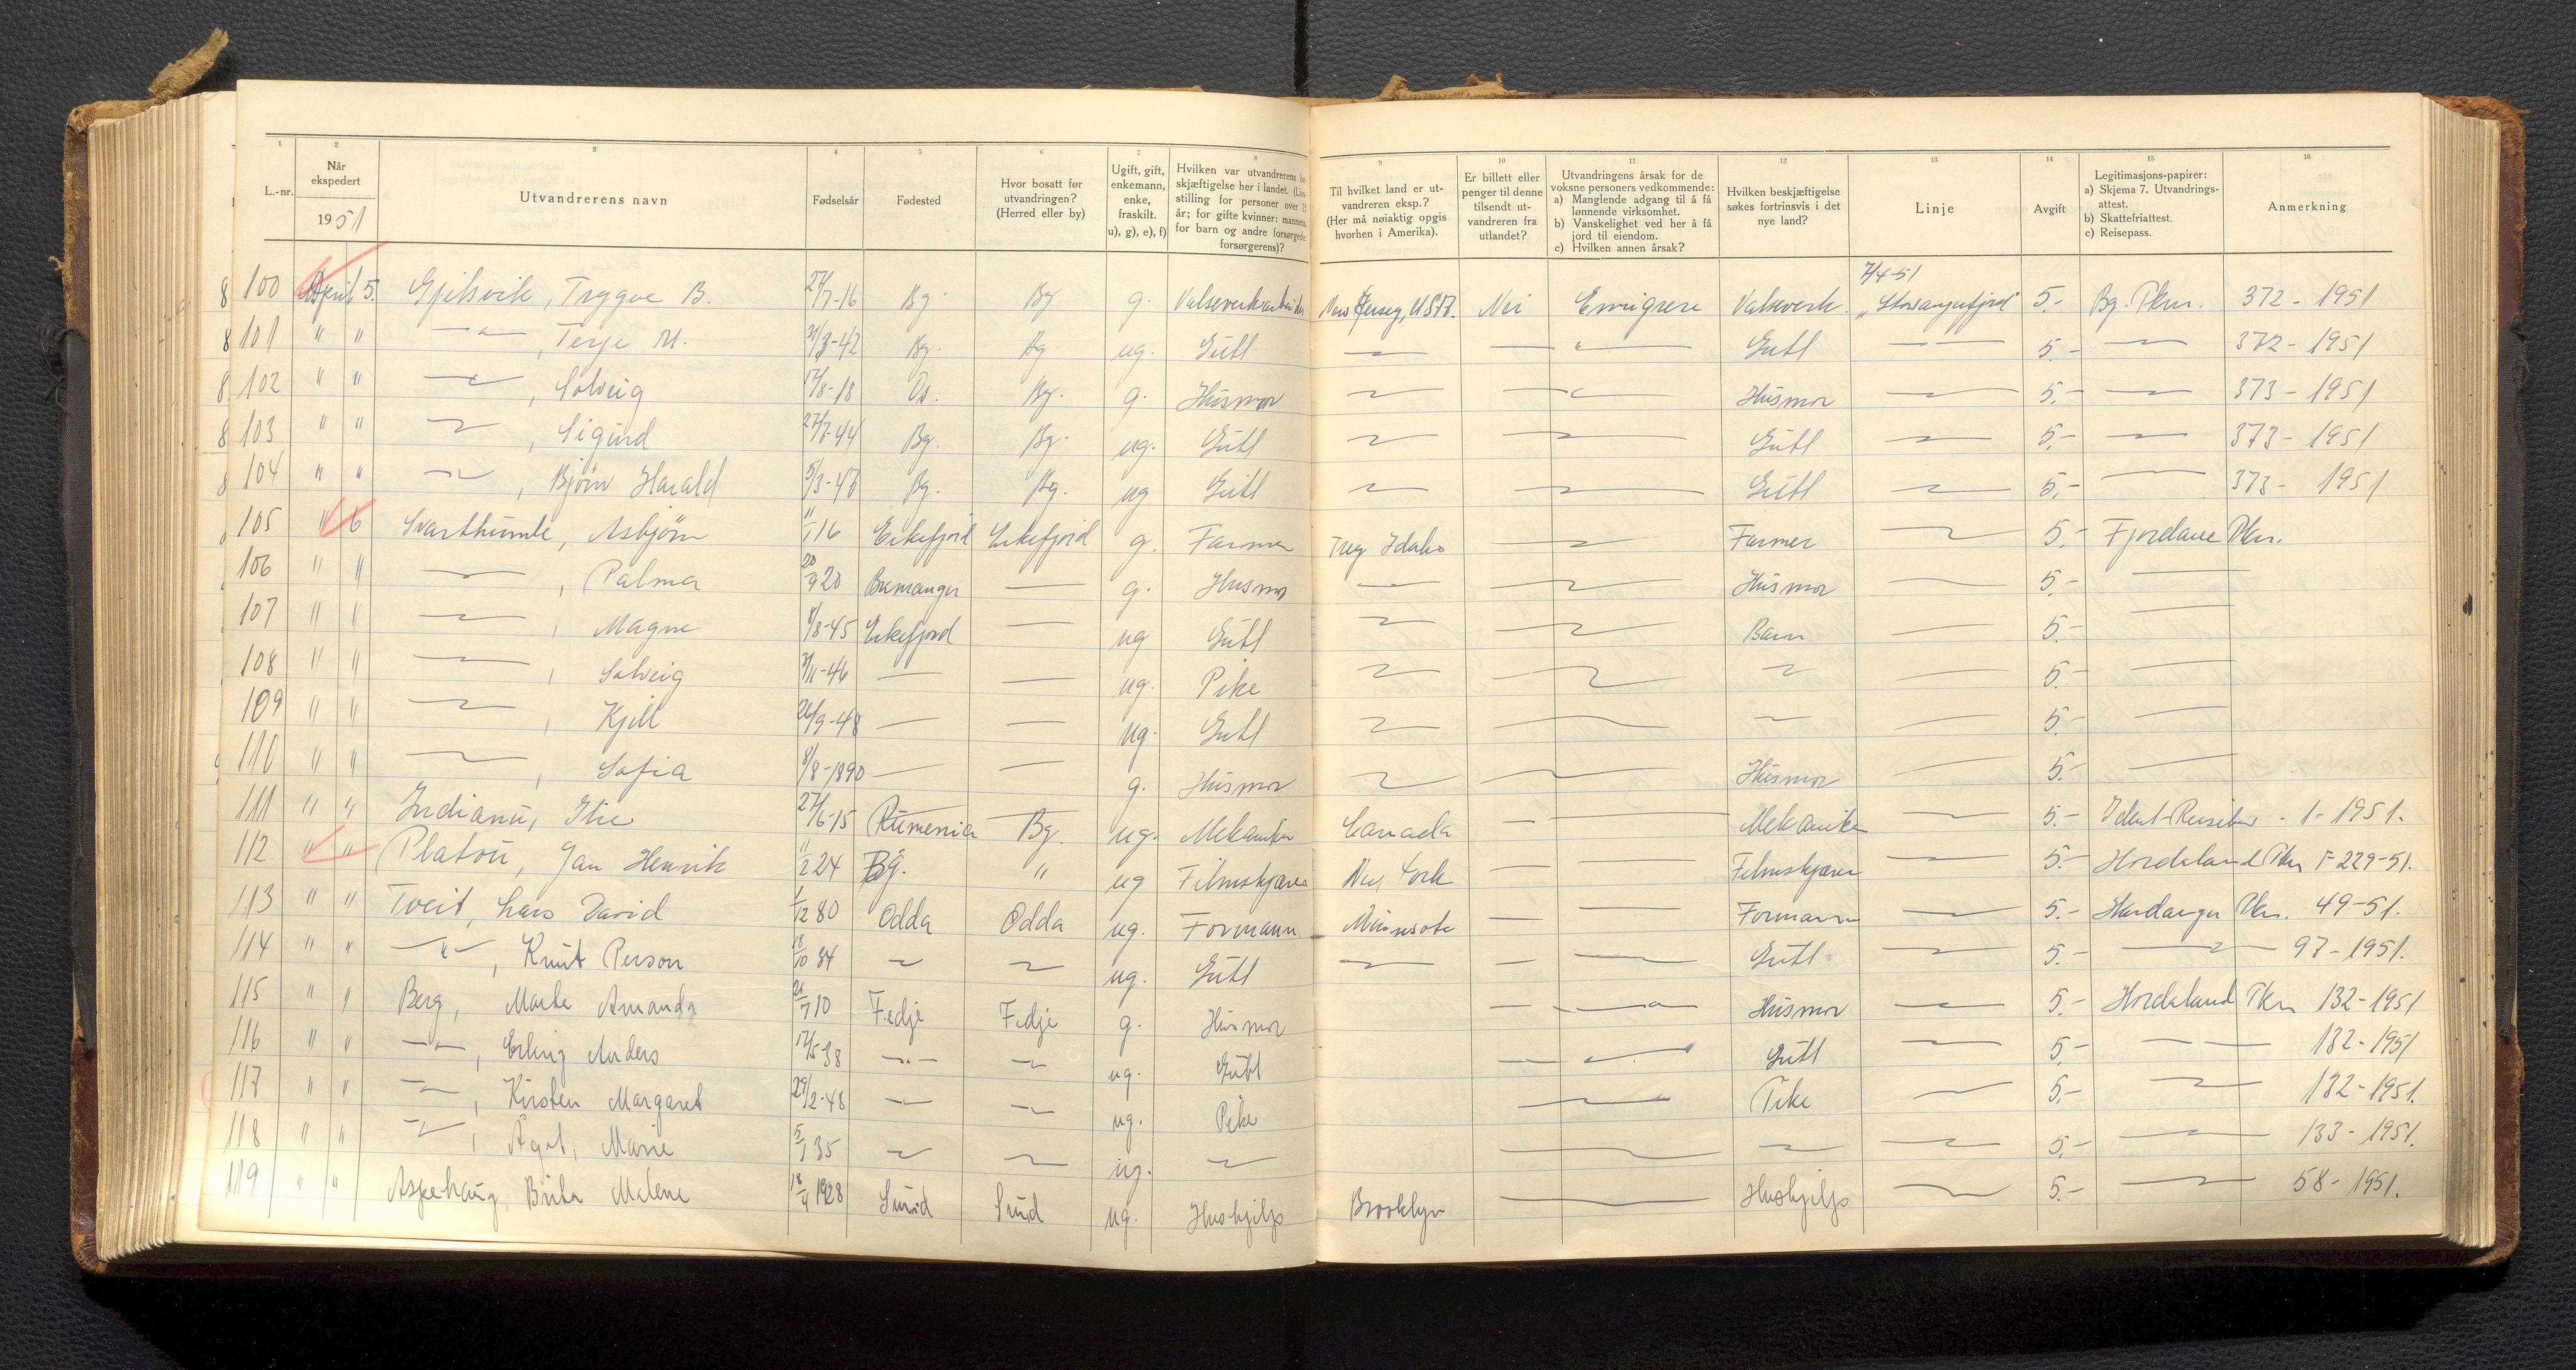 1 2 3 4 5 6 7 8 9 10 11 12 13 14 15 16
L.-nr. Når ekspedert 1951 Utvandrerens navn Fødselsår Fødested Hvor bosatt før utvandringen? (Herred eller by) Ugift, gift, enkemann, enke, fraskilt. u), g), e), f) Hvilken var utvandrerens be- skjæftigelse her i landet. (Livs- stilling for personer over 15 år; for gifte kvinner: mannens, for barn og andre forsørgede: forsørgerens)? Til hvilket land er ut- vandreren eksp.? (Her må nøiaktig opgis hvorhen i Amerika). Er billett eller penger til denne tilsendt ut- vandreren fra utlandet? Utvandringens årsak for de voksne personers vedkommende: a) Manglende adgang til å få lønnende virksomhet. b) Vanskelighet ved her å få jord til eiendom. c) Hvilken annen årsak? Hvilken beskjæftigelse søkes fortrinsvis i det nye land? Linje Avgift Legitimasjons-papirer: a) Skjema 7. Utvandrings- attest. b) Skattefriattest. c) Reisepass. Anmerkning
7/4-51
8 100 April 5. Gjelsvik, Trygve B. 27/7-16 Bg. Bg g. Valseverksarbeider New Jersey, USA. Nei Emigrere Valseverk. "Stavangerfjord" 5.- Bg. Pkm. 372 - 1951
8 101 " " —"—, Terje M. /3-42 Bg. Bg. ug. Gutt — — " — Gutt — — 5.- — 372 - 1951
8 102 " " —"—, Solveig 17/8-18 Os. Bg. g. Husmor — — Husmor — 5.- — 373 - 1951
8 103 " " —, Sigurd Bg. Bg. ug. Gutt — — Gutt — 5.- — 373 - 1951
8 104 " " —, Bjørn Harald Bg. Bg. ug Gutt — — Gutt — 5.- — 373 - 1951
105 " 6 Svarthumle, Asbjørn 11/1 16 Eikefjord Eikefjord g. Farmer Idaho — Farmer — 5.- Fjordane Pkm.
106 " " —, Palma 20/9 20 Bremanger — g. Husmor — — Husmor — 5.- —
107 " " —, Magne /8-45 Eikefjord — ug Gutt — — Barn — 5.- —
108 " " —, Solveig /11-46 — — ug. Pike — — — — 5.- —
109 " " —, Kjell 26/9-48 — — ug. Gutt — — — — 5.- —
110 " " —, Sofia 8/8-1890 — — g. Husmor — — Husmor — 5.- —
111 " " Indianu, 27/6-15 Rumenia Bg. ug. Mekaniker Canada — — Mekaniker 5.- - 1 - 1951.
112 " " Platou, Jan Henrik 11/2 24 Bg. " ug Filmskjærer New York — — Filmskjærer 5.- Hordaland Pkm F-229-51.
113 " " Tveit, Lars David 1/12 80 Odda Odda ug. Formann Minnsota — — Formann — 5.- Hardanger Pkm. 49-51.
114 " " —"—, Knut Person 18/10 84 — — ug. Gutt — — — Gutt — 5.- — 97 - 1951.
115 " " Berg, Marta Amanda 21/7 10 Fedje Fedje g. Husmor — — Husmor — 5.- Hordaland Pkm 132-1951
116 " " —"—, Erling Anders 17/5-38 —"— — ug. Gutt — — Gutt — 5.- — 132-1951
117 " " —, Kirsten Margaret 29/2-48 — — ug. Pike — Pike — 5.- — 132-1951.
118 " " —, Ågot, Marie 5/1 35 — — ug. — — — — 5.- — 133-1951.
119 " " Aspehaug, Brita Malene 18/4 1928 Sund Sund ug. Hushjelp Brooklyn — Hushjelp — 5.- — 58-1951.